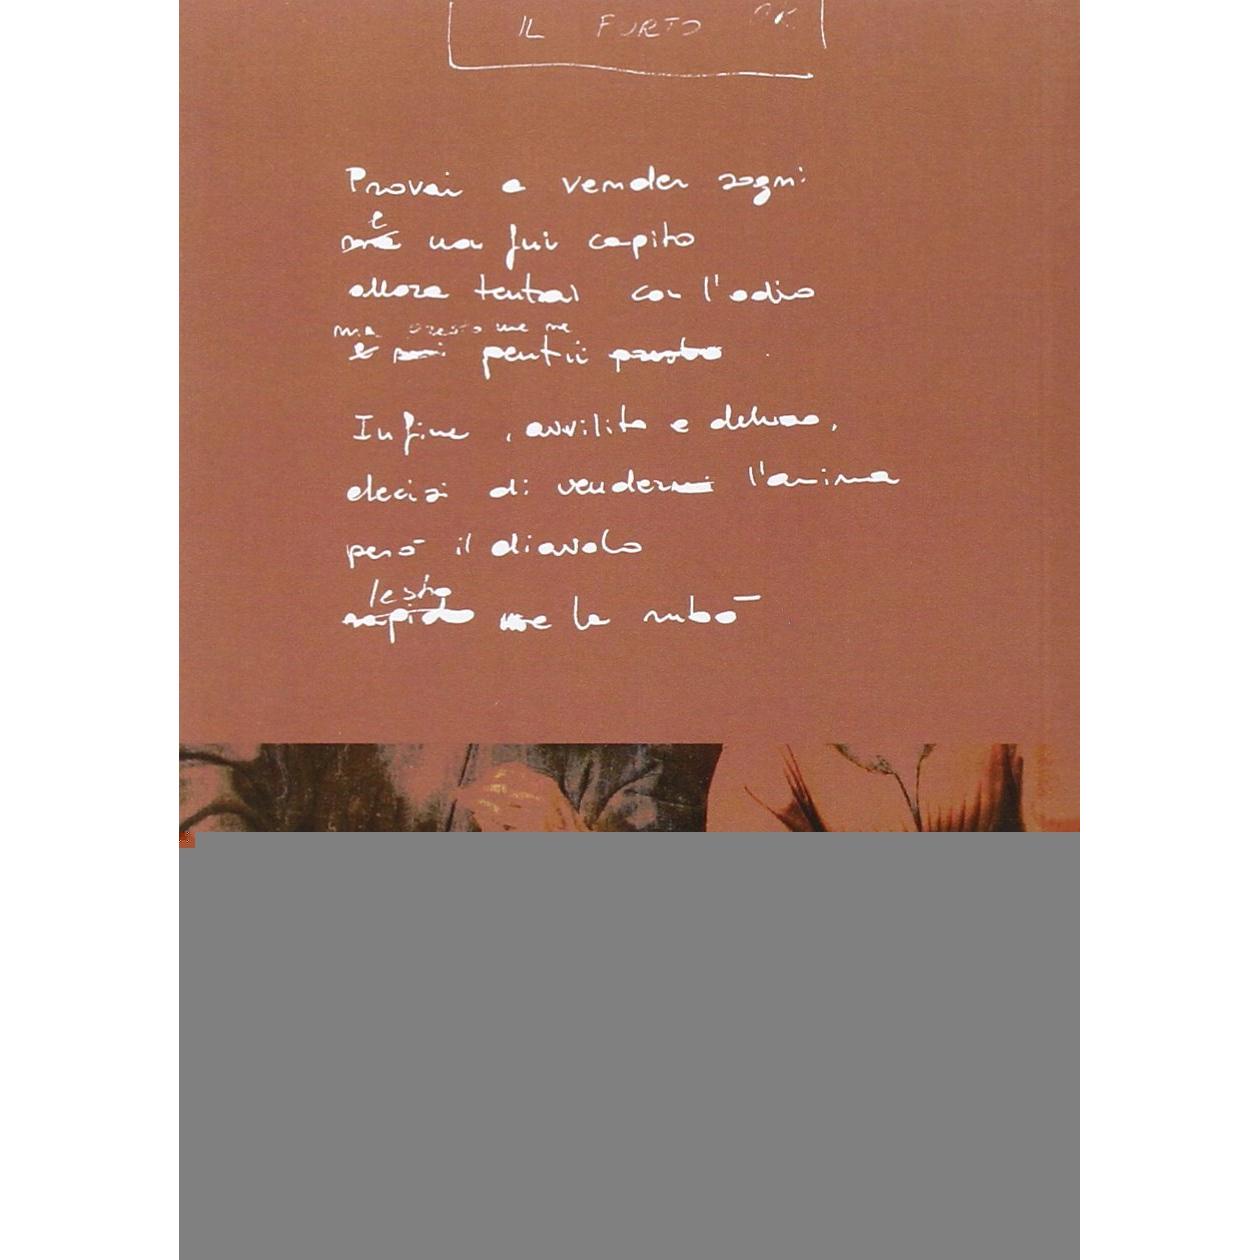 IL FURTO OK
Provai a vender sogni
e
ma non fui capito
allora tentai con l'odio
ma presto me ne
e mi pentii presto
Infine, avvilito e deluso,
decisi di vendermi l'anima
però il diavolo
lesto
rapido me la rubò